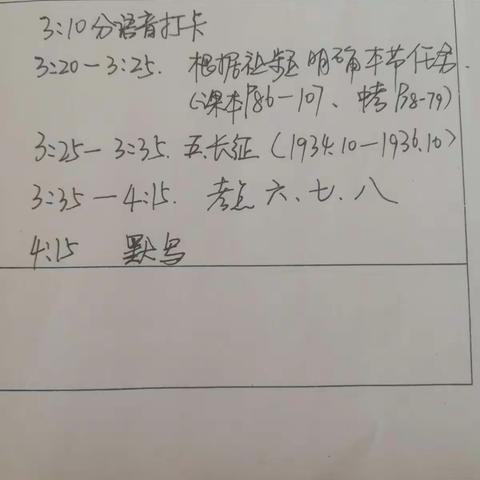 3:10分语音打卡
3:20—3:25. 根据 明确本节任务.
(课本P86—107、中考P78-79)
3:25—3:35. 五.长征（1934.10—1936.10）
3:35—4:15. 考点 六、七、八
4:15 默写